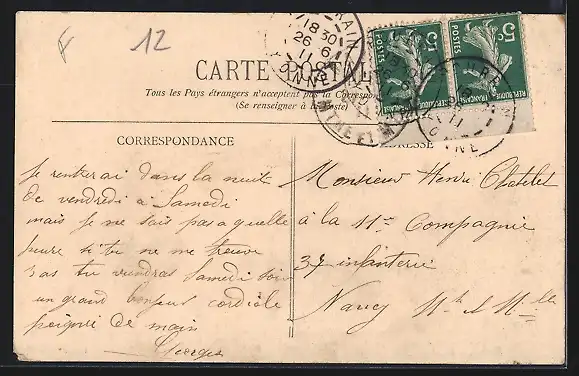 F 12
18 30
26 - 6
11
CARTE POSTALE
Tous les Pays étrangers n'acceptent pas la Correspon
(Se renseigner à la Poste)
5c
POSTES
5c
POSTES
REPUBLIQUE FRANÇAISE
CORRESPONDANCE
ADRESSE
je rentrerai dans la nuit
de vendredi à Samedi
mais je ne sais pas a quelle
heure si tu ne me trouve
pas tu viendras Samedi soir
un grand bonjour cordiale
poignée de main
Georges
Monsieur Henri Chatelet
à la 11e Compagnie
37 infanterie
Nancy Mthe & Mlle